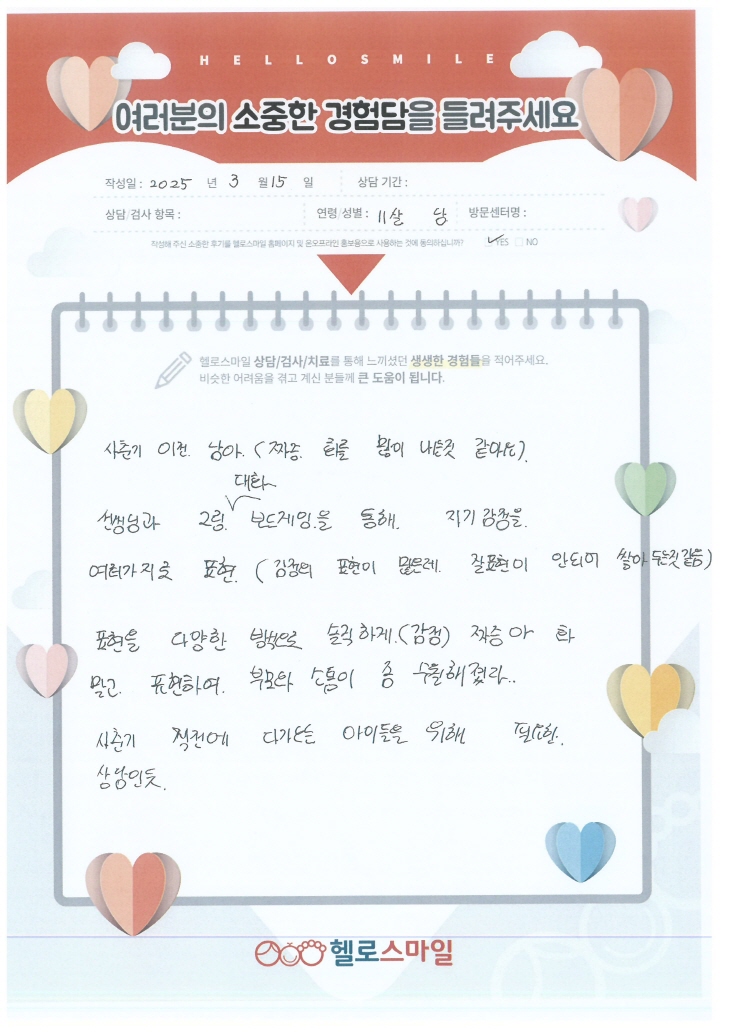 HELLOSMILE
여러분의 소중한 경험담을 들려주세요
작성일 : 2025 년 3 월 15 일 상담 기간 :
상담/검사 항목 : 연령/성별 : 11살 남 방문센터명 :
작성해 주신 소중한 후기를 헬로스마일 홈페이지 및 온오프라인 홍보용으로 사용하는 것에 동의하십니까? ✓YES NO
헬로스마일 상담/검사/치료를 통해 느끼셨던 생생한 경험들을 적어주세요.
비슷한 어려움을 겪고 계신 분들께 큰 도움이 됩니다.
사춘기 이전. 남아. (짜증. 화를 많이 내는것 같아요).
대화
선생님과 그림. 보드게임.을 통해. 자기 감정을.
여러가지로 표현. (감정의 표현이 많은데. 잘표현이 안되어 쌓아 두는것 같음)
표현을 다양한 방식으로 솔직하게.(감정) 짜증 아 화
말고. 표현하여. 부모와 소통이 좀 수월해졌다..
사춘기 직전에 다가오는 아이들을 위해 필요한.
상담인듯.
헬로스마일